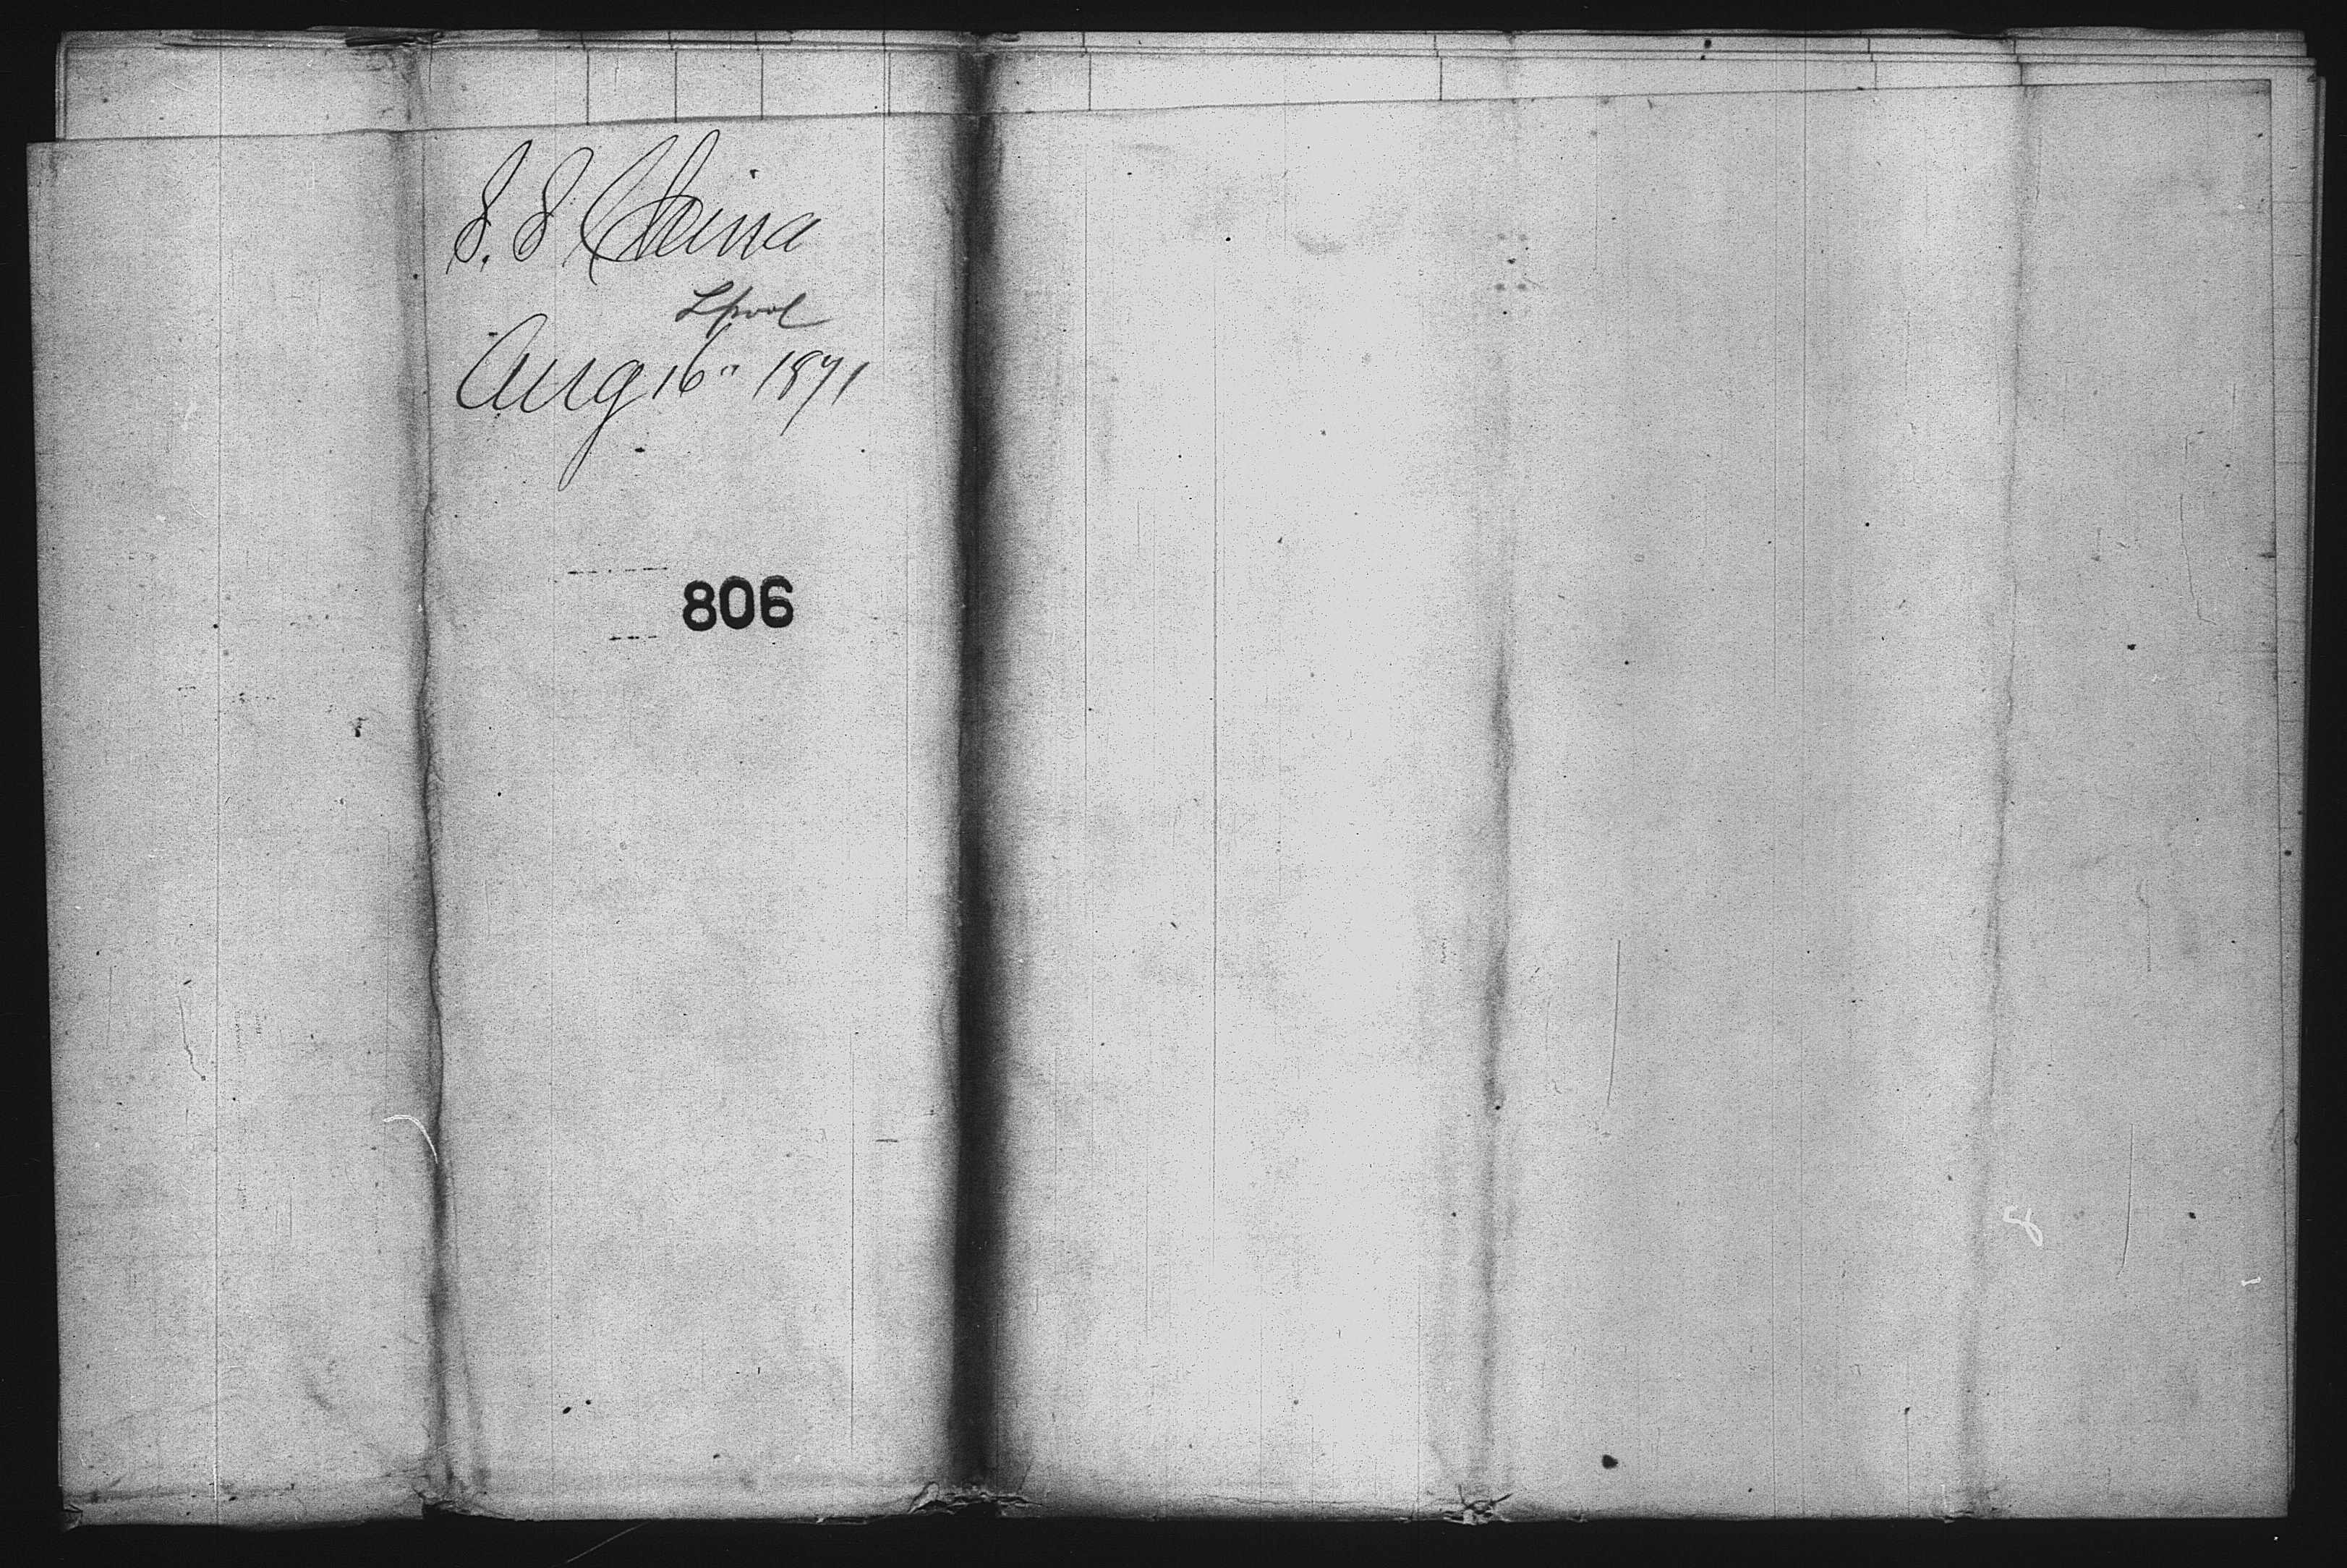 S. S. China
Lpool
Aug 16" 1871
806